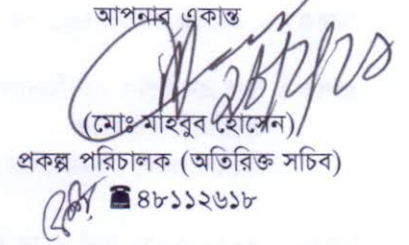 আপনার একান্ত
(মোঃ মাহবুব হোসেন)
প্রকল্প পরিচালক (অতিরিক্ত সচিব)
☎ ৪৮১১২৬১৮